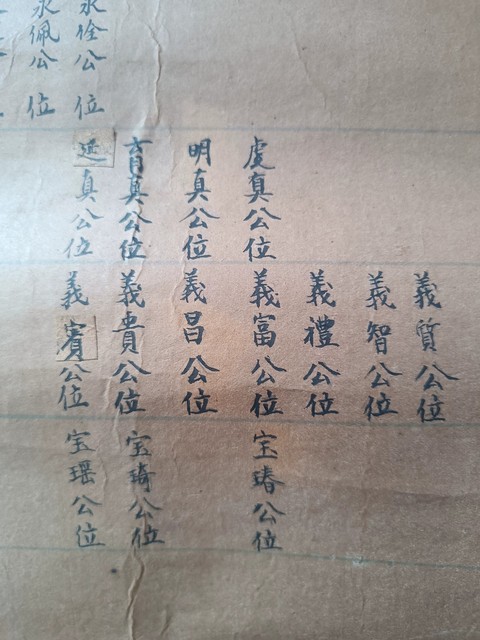 永公位
永佩公位
虔真公位
明真公位
育真公位
真公位
義質公位
義智公位
義禮公位
義富公位
義昌公位
義貴公位
義賓公位
宝瑃公位
宝琦公位
宝瑶公位